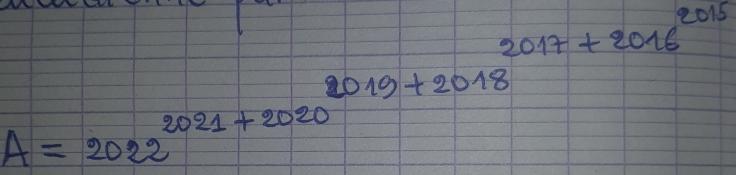 A = 2022^{2021 + 2020^{2019 + 2018^{2017 + 2016^{2015}}}}